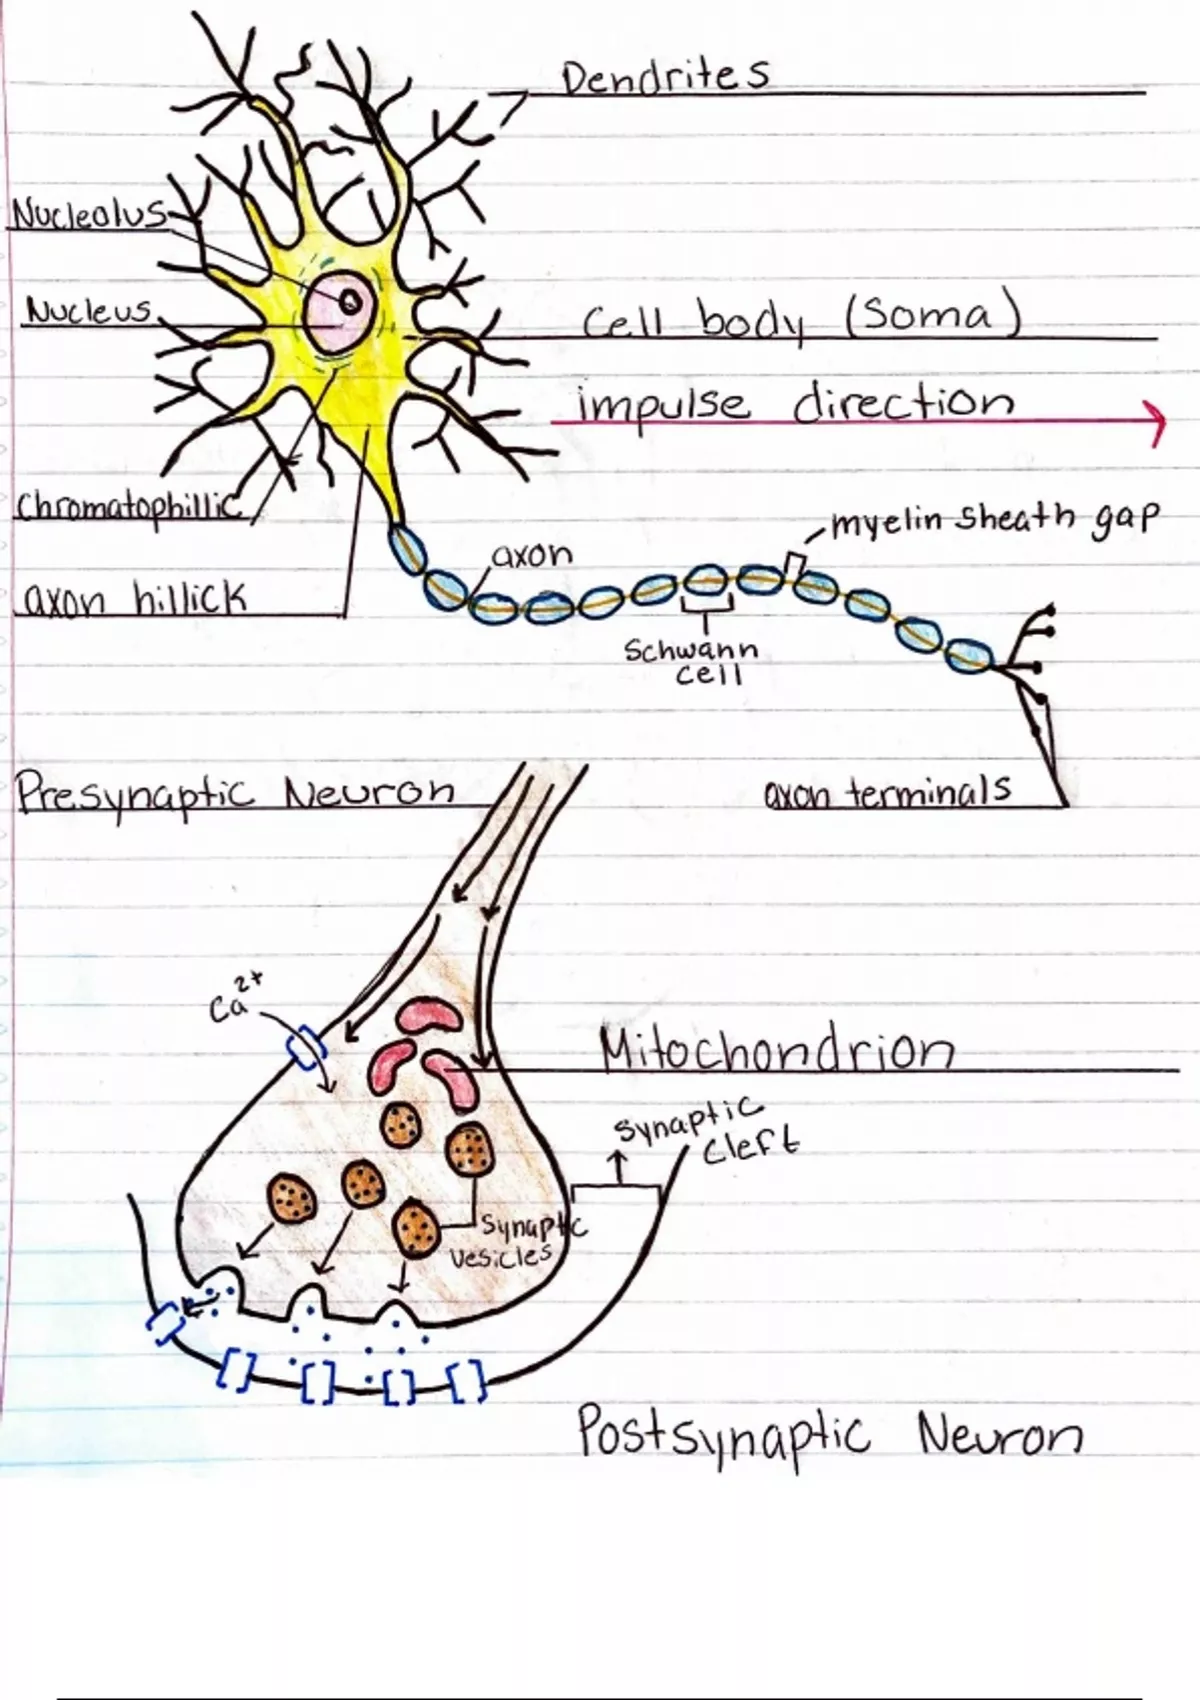 Dendrites
Nucleolus
Nucleus
Cell body (Soma)
impulse direction
Chromatophillic
myelin sheath gap
axon
axon hillick
Schwann
cell
Presynaptic Neuron
axon terminals
Ca2+
Mitochondrion
synaptic
cleft
Synaptic
vesicles
Postsynaptic Neuron